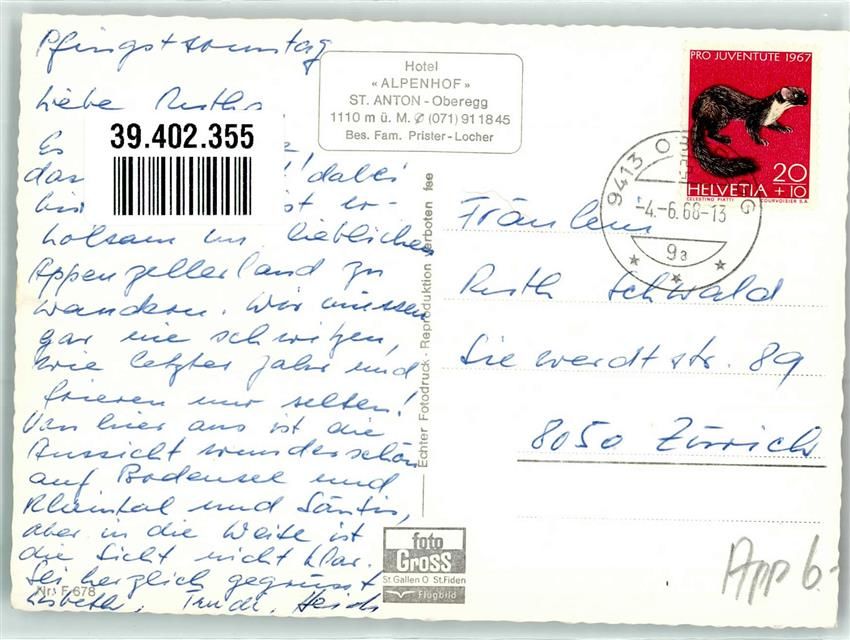 Pfingstsonntag
Hotel
«ALPENHOF»
ST. ANTON - Oberegg
1110 m ü. M. ✆ (071) 91 18 45
Bes. Fam. Prister-Locher
Liebe Ruth
39.402.355
Es
das dabei
ist er-
holsam im lieblichen
Appenzellerland zu
wandern. Wir müssen
gar nie schwitzen,
wie letztes Jahr und
frieren nur selten!
Von hier aus ist die
Aussicht wunderschön
auf Bodensee und
Rheintal und Säntis,
aber in die Weite ist
die Sicht nicht klar.
Sei herzlich gegrüsst
Lisbeth, Trudi, Heidi
Nr. F 678
Echter Fotodruck - Reproduktion verboten
foto
Gross
St.Gallen O St.Fiden
Flugbild
PRO JUVENTUTE 1967
20
HELVETIA +10
CELESTINO PIATTI COURVOISIER S.A.
9413 O G
-4.-6.68-13
9a
Fräulein
Ruth Schwald
Siewerdtstr. 89
8050 Zürich
App 6.-